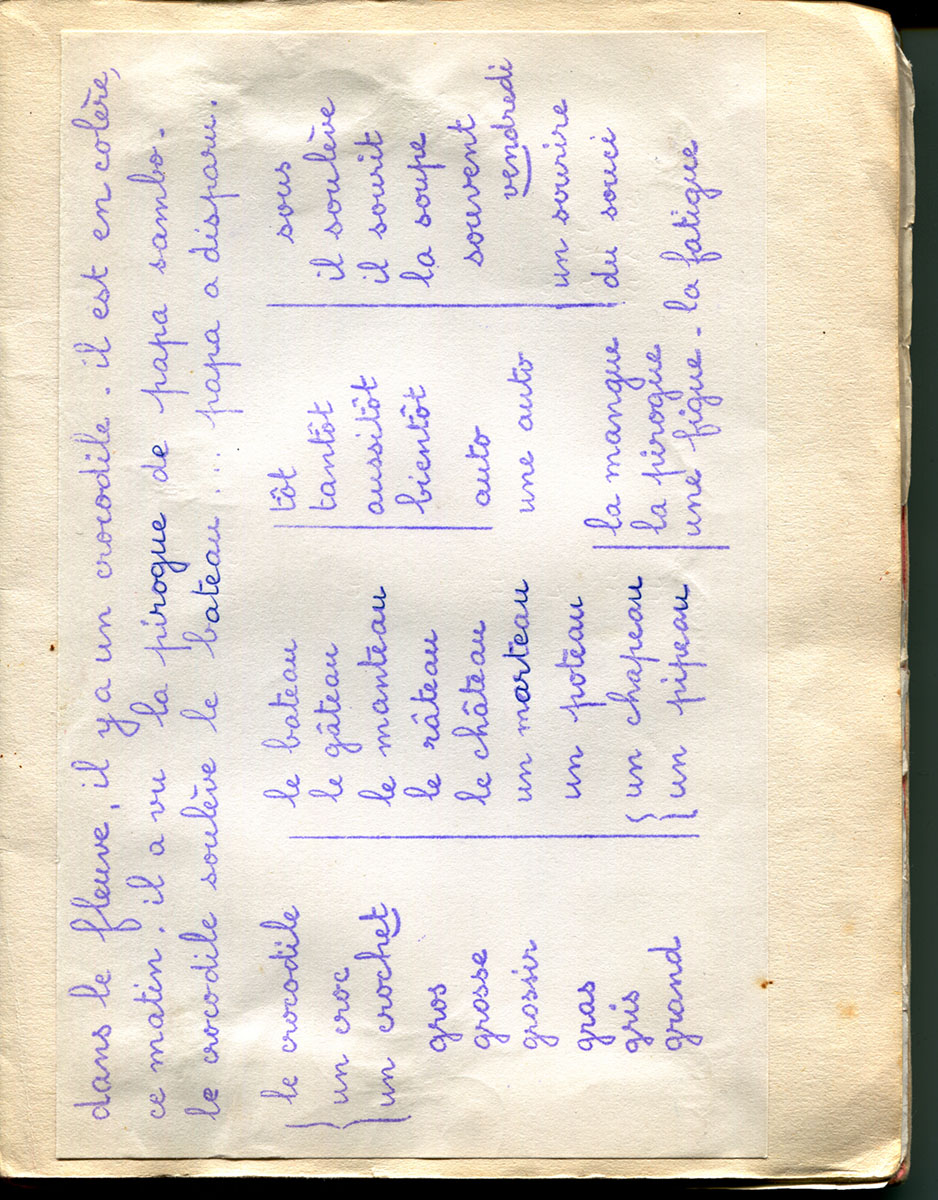 dans le fleuve, il y a un crocodile. il est en colère,
ce matin. il a vu la pirogue de papa sambo.
le crocodile soulève le bateau... papa a disparu.
le crocodile
un croc
un crochet
gros
grosse
grossir
gras
gris
grand
le bateau
le gâteau
le manteau
le râteau
le château
un marteau
un poteau
un chapeau
un pipeau
tôt
tantôt
aussitôt
bientôt
auto
une auto
la mangue
la pirogue
une figue - la fatigue
sous
il soulève
il sourit
la soupe
souvent
vendredi
un sourire
du souci